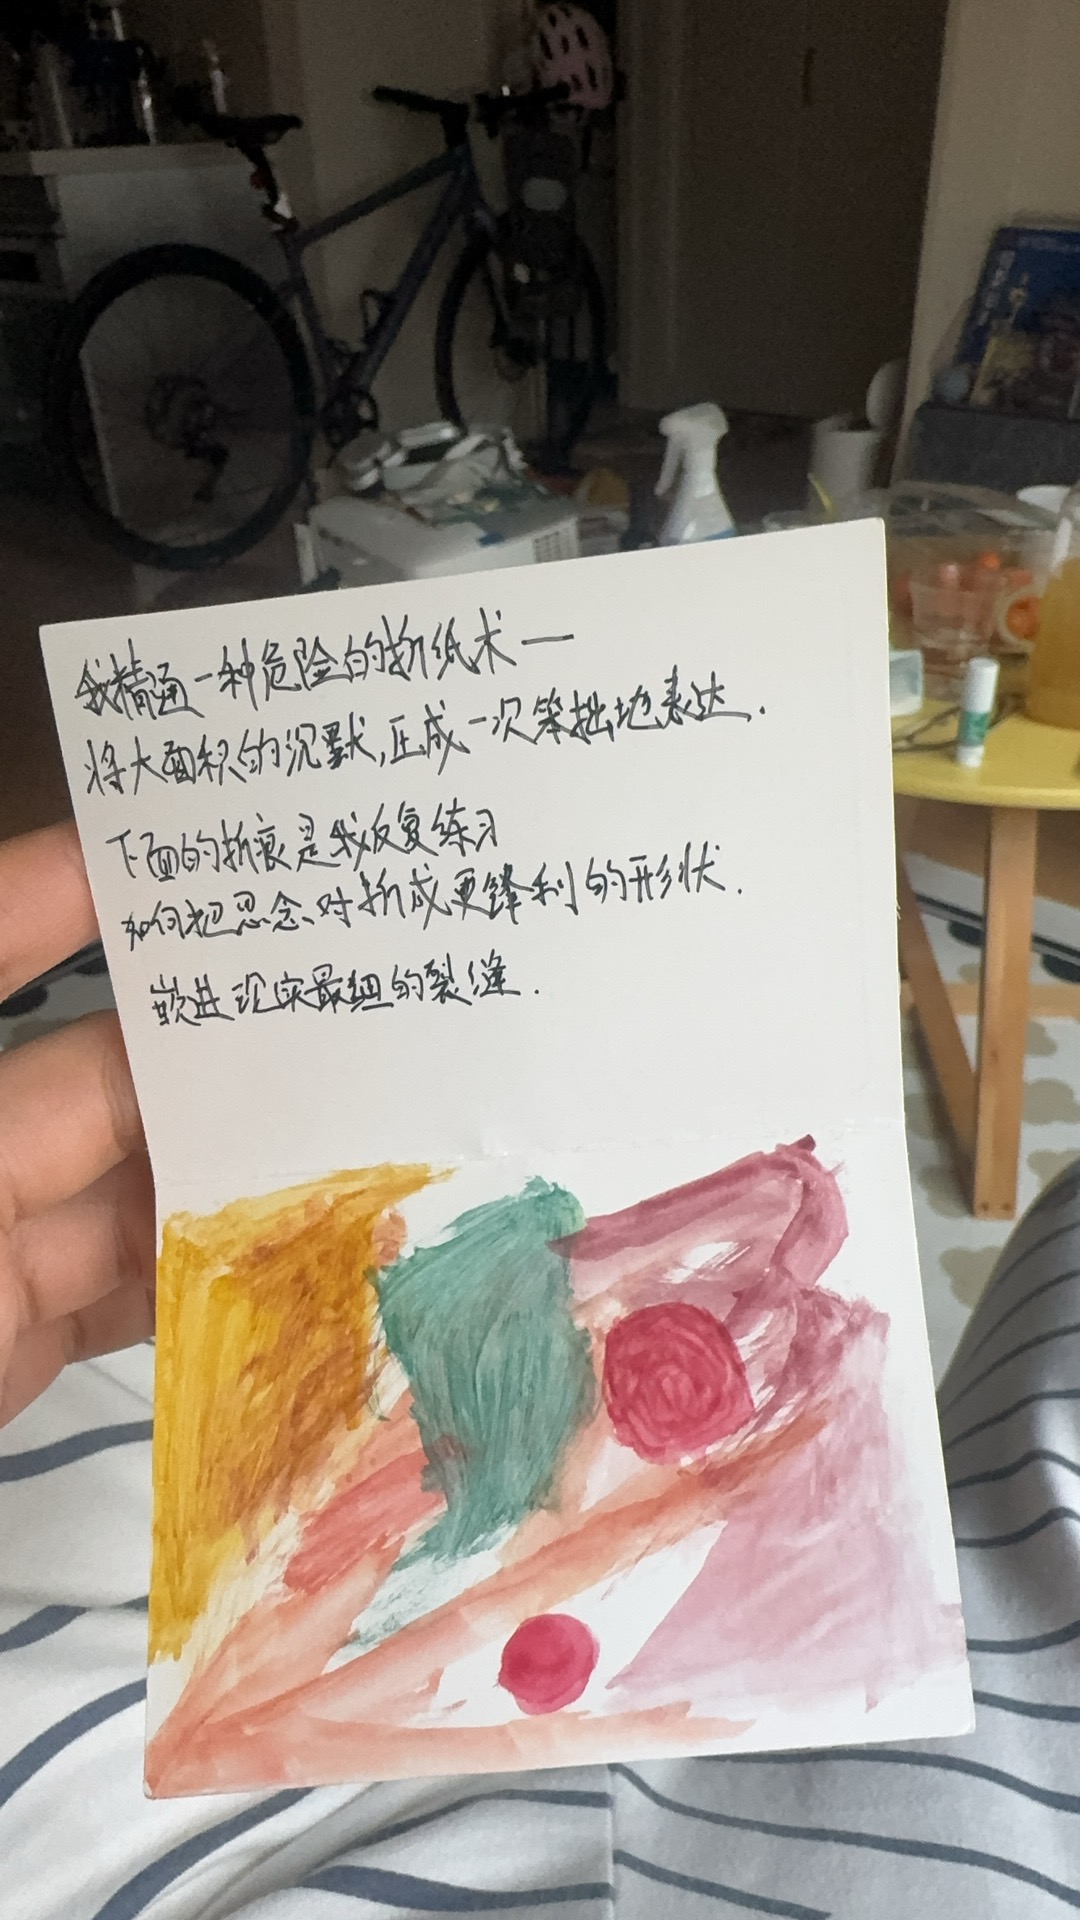 我精通一种危险的折纸术一
将大面积的沉默,压成一次笨拙地表达.
下面的折痕是我反复练习
如何把思念对折成更锋利的形状.
嵌进现实最细的裂缝.